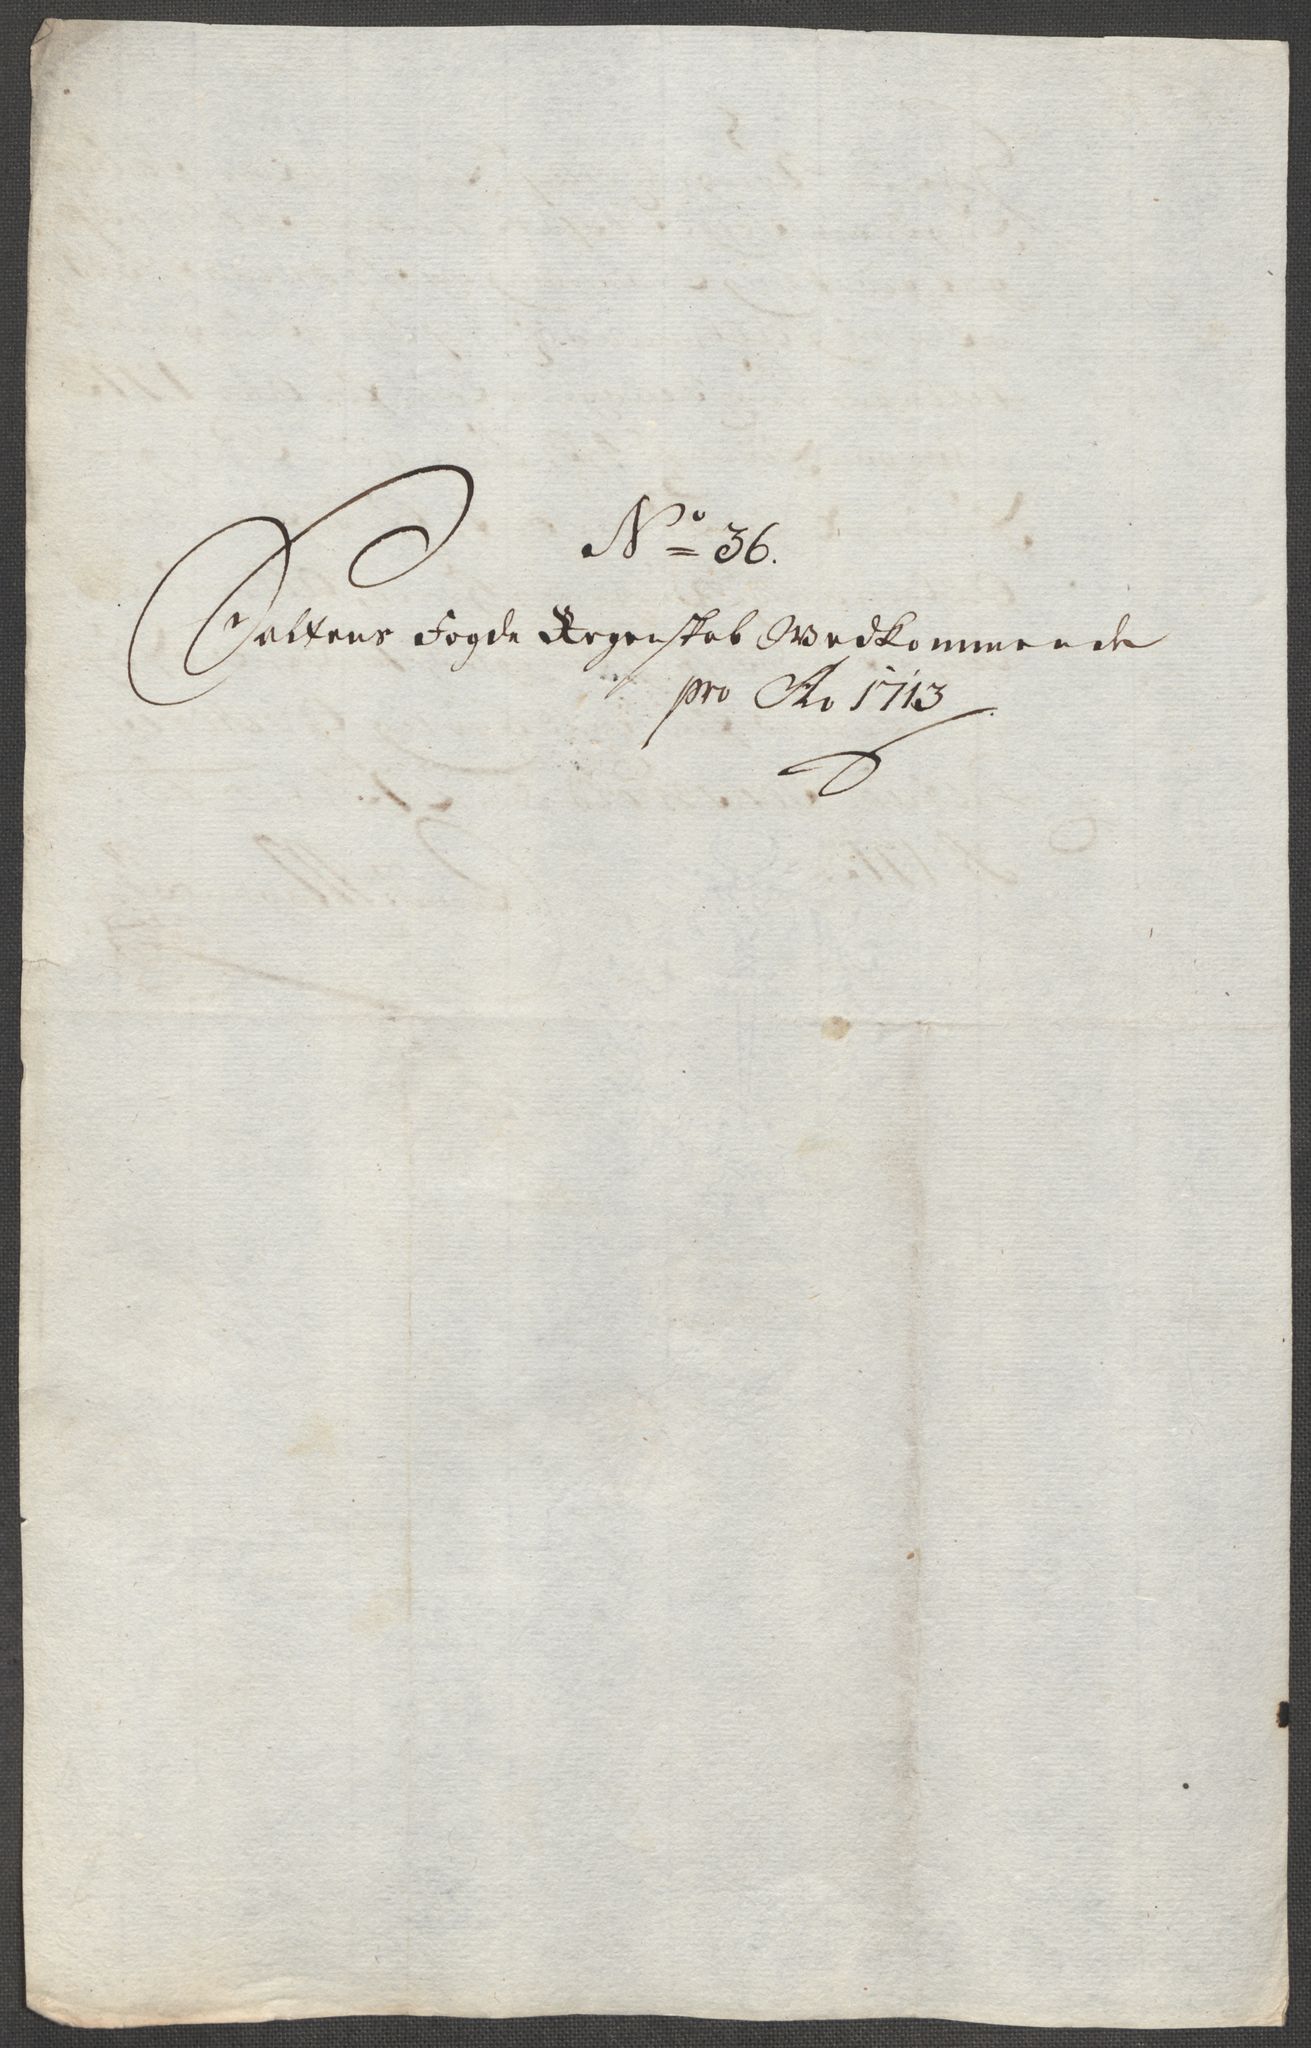 No 36.
Saltens Fogde Regenskab Wedkommende
pro Ao 1713